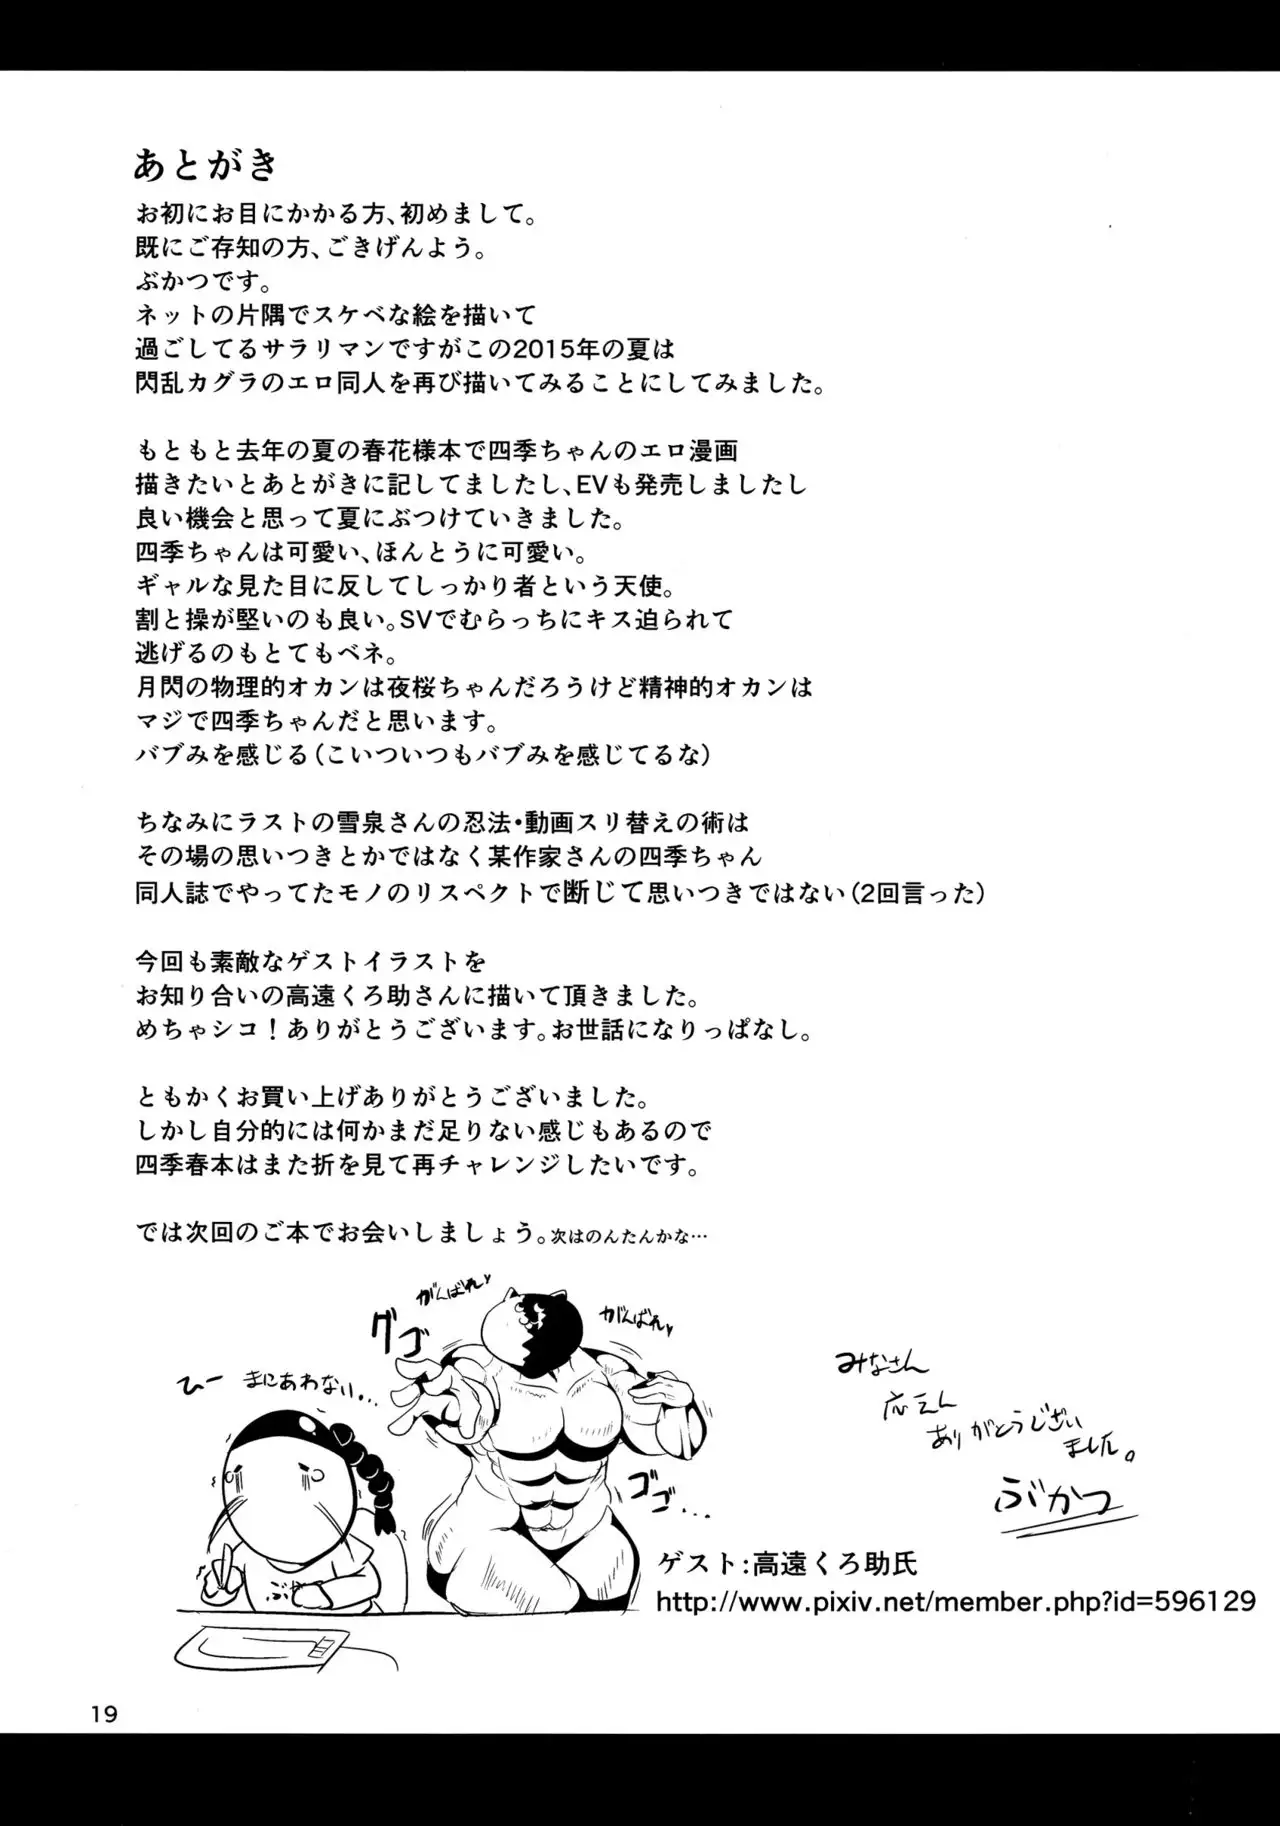 あとがき
お初にお目にかかる方、初めまして。
既にご存知の方、ごきげんよう。
ぶかつです。
ネットの片隅でスケベな絵を描いて
過ごしてるサラリマンですがこの2015年の夏は
閃乱カグラのエロ同人を再び描いてみることにしてみました。
もともと去年の夏の春花様本で四季ちゃんのエロ漫画
描きたいとあとがきに記してましたし、EVも発売しましたし
良い機会と思って夏にぶつけていきました。
四季ちゃんは可愛い、ほんとうに可愛い。
ギャルな見た目に反してしっかり者という天使。
割と操が堅いのも良い。SVでむらっちにキス迫られて
逃げるのもとてもベネ。
月閃の物理的オカンは夜桜ちゃんだろうけど精神的オカンは
マジで四季ちゃんだと思います。
バブみを感じる(こいついつもバブみを感じてるな)
ちなみにラストの雪泉さんの忍法・動画スリ替えの術は
その場の思いつきとかではなく某作家さんの四季ちゃん
同人誌でやってたモノのリスペクトで断じて思いつきではない(2回言った)
今回も素敵なゲストイラストを
お知り合いの高遠くろ助さんに描いて頂きました。
めちゃシコ！ありがとうございます。お世話になりっぱなし。
ともかくお買い上げありがとうございました。
しかし自分的には何かまだ足りない感じもあるので
四季春本はまた折を見て再チャレンジしたいです。
では次回のご本でお会いしましょう。次はのんたんかな…
がんばれ♥
がんばれ♥
グゴゴ
ひー まにあわない...
ゴゴゴ...
ぶか
みなさん
応えん
ありがとうござい
ました。
ぶかつ
ゲスト：高遠くろ助氏
http://www.pixiv.net/member.php?id=596129
19